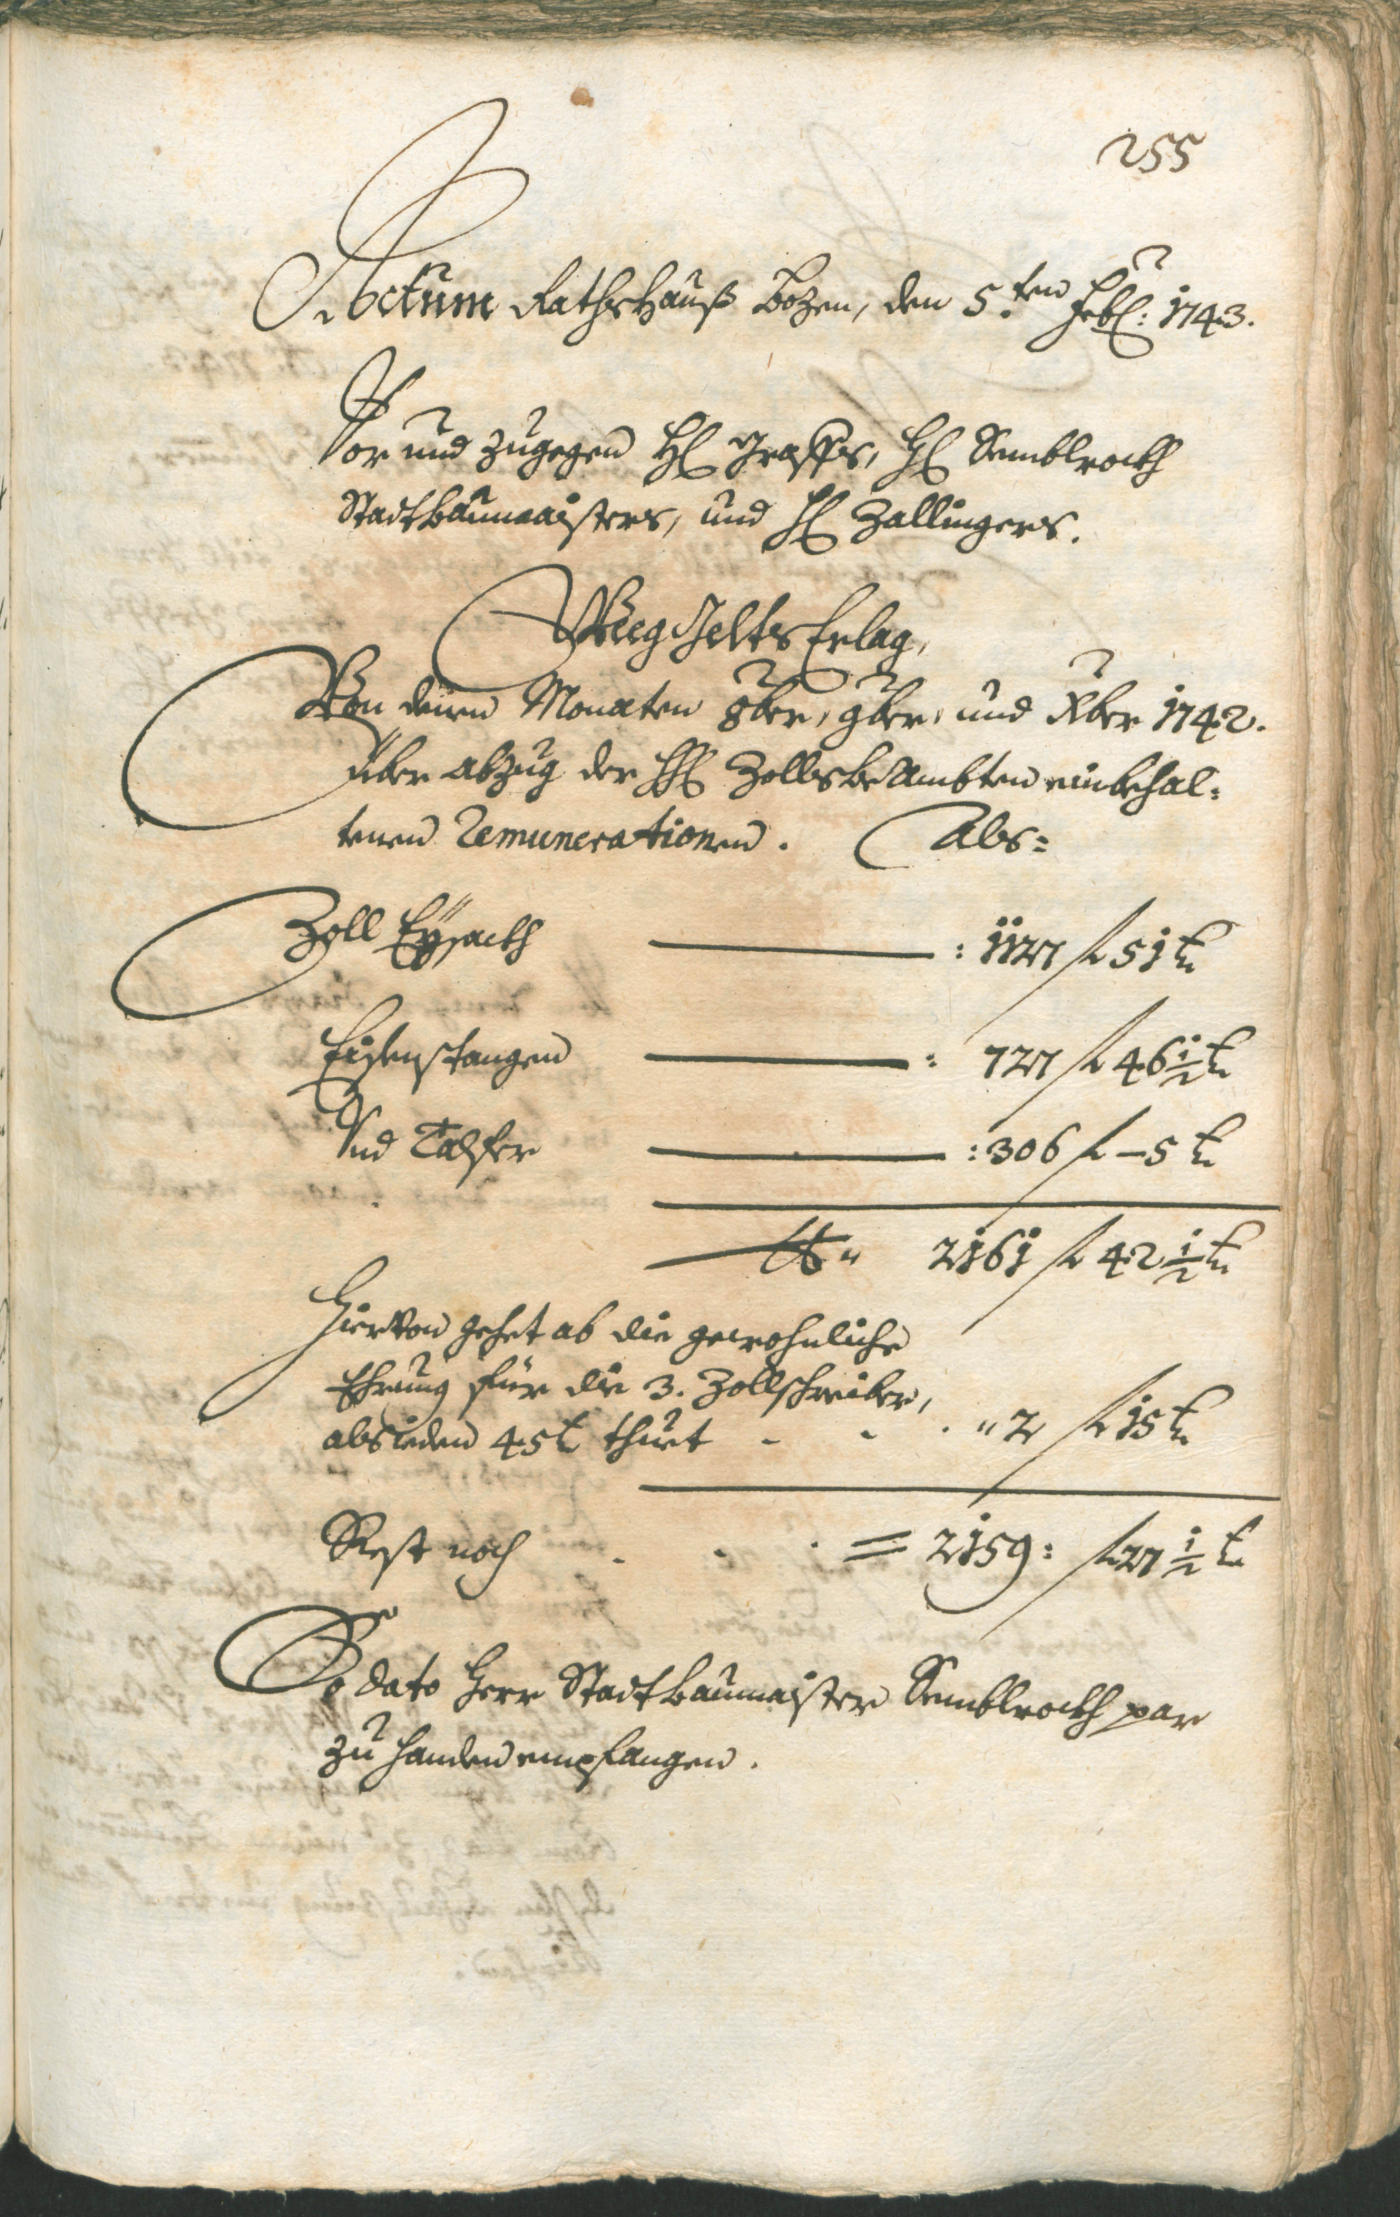 255
Actum Rathshauß Bozen, den 5.ten Feb: 1743.
Vor und zugegen H Graffs, H
Stadtbaumaisters, und H Zallingers.
Weeg Gelts Erlag,
Von denen Monaten 8ber, 9ber, und Xber 1742.
über abzug der HH Zollsbeambten einbehal=
tenen Remunerationen. Als=
Zoll Eÿsackh : 1127 f 51 k
Eisenstangen : 727 f 46 1/2 k
Und Talfer : 306 f – 5 k
2161 f 42 1/2 k
Hiervon gehet ab die gewohnliche
Ehrung für die 3. Zollschreiber,
als ieden 45 k thuet - - . " 2 f 15 k
Rest noch . - . = 2159: f 27 1/2 k
So dato Herr Stadtbaumaister par
zu handen empfangen.